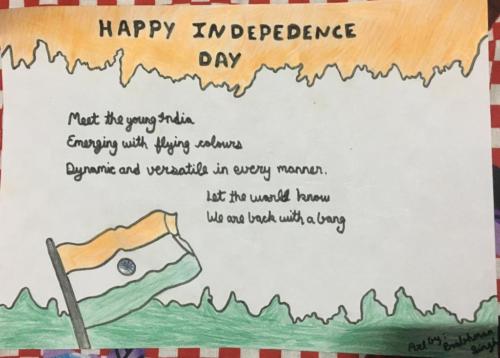 HAPPY INDEPEDENCE
DAY
Meet the young India
Emerging with flying colours
Dynamic and versatile in every manner.
Let the world know
We are back with a bang
Art by: